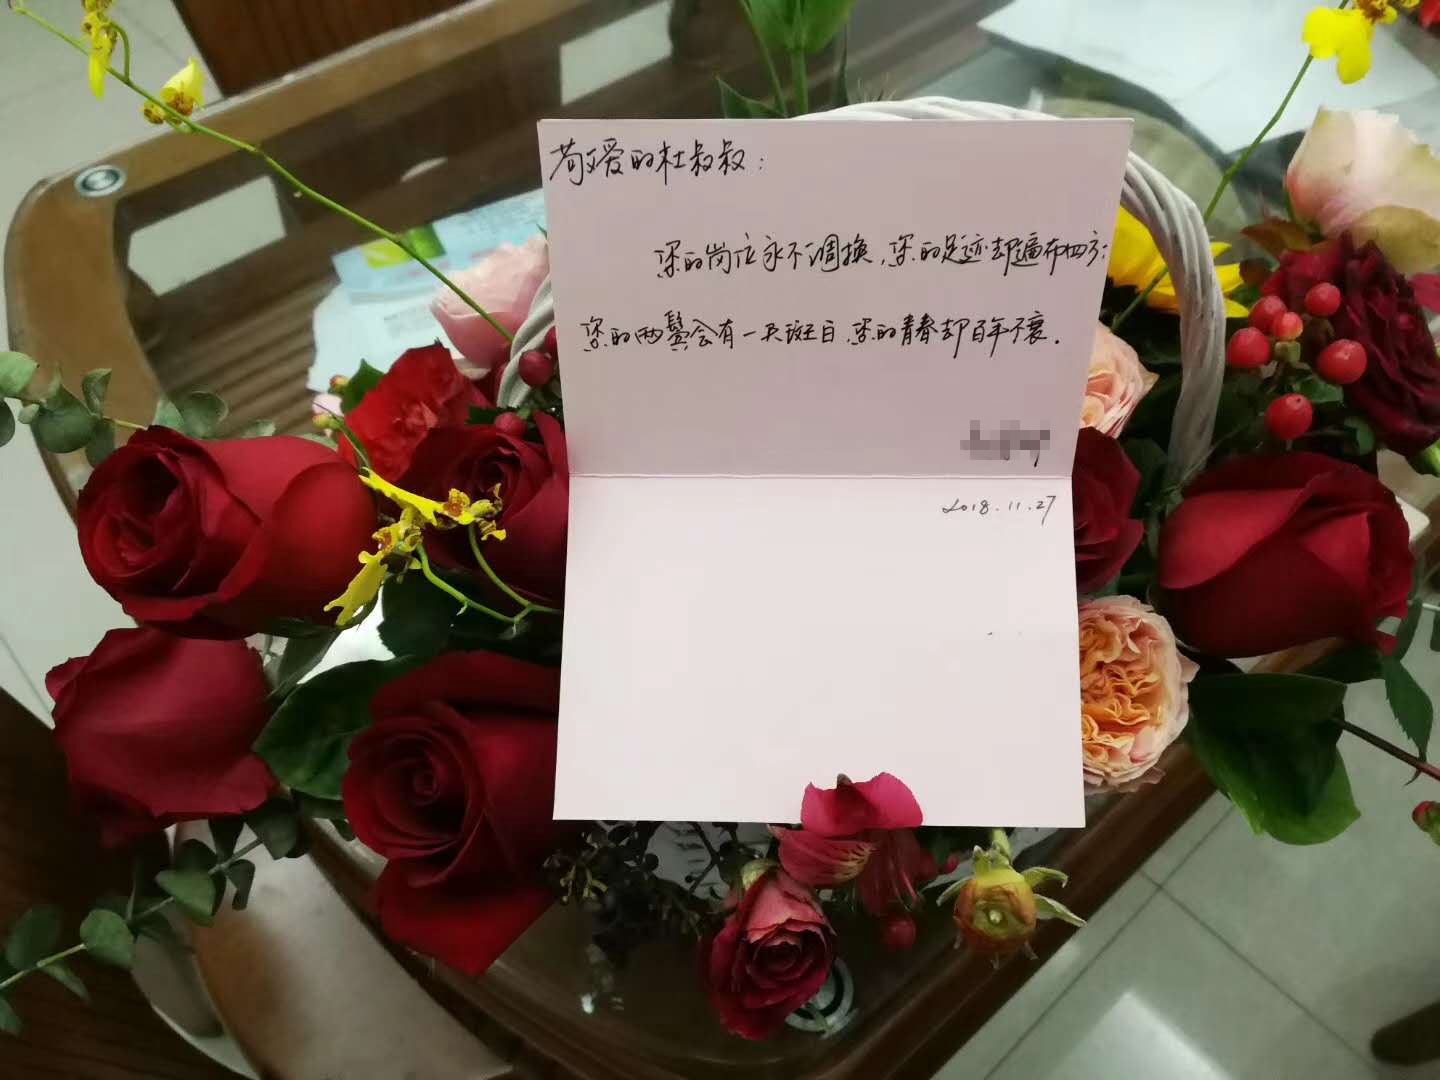 敬爱的杜叔叔：
您的岗位永不调换，您的足迹却遍布四方；
您的两鬓会有一天斑白，您的青春却百年不衰.
2018.11.27